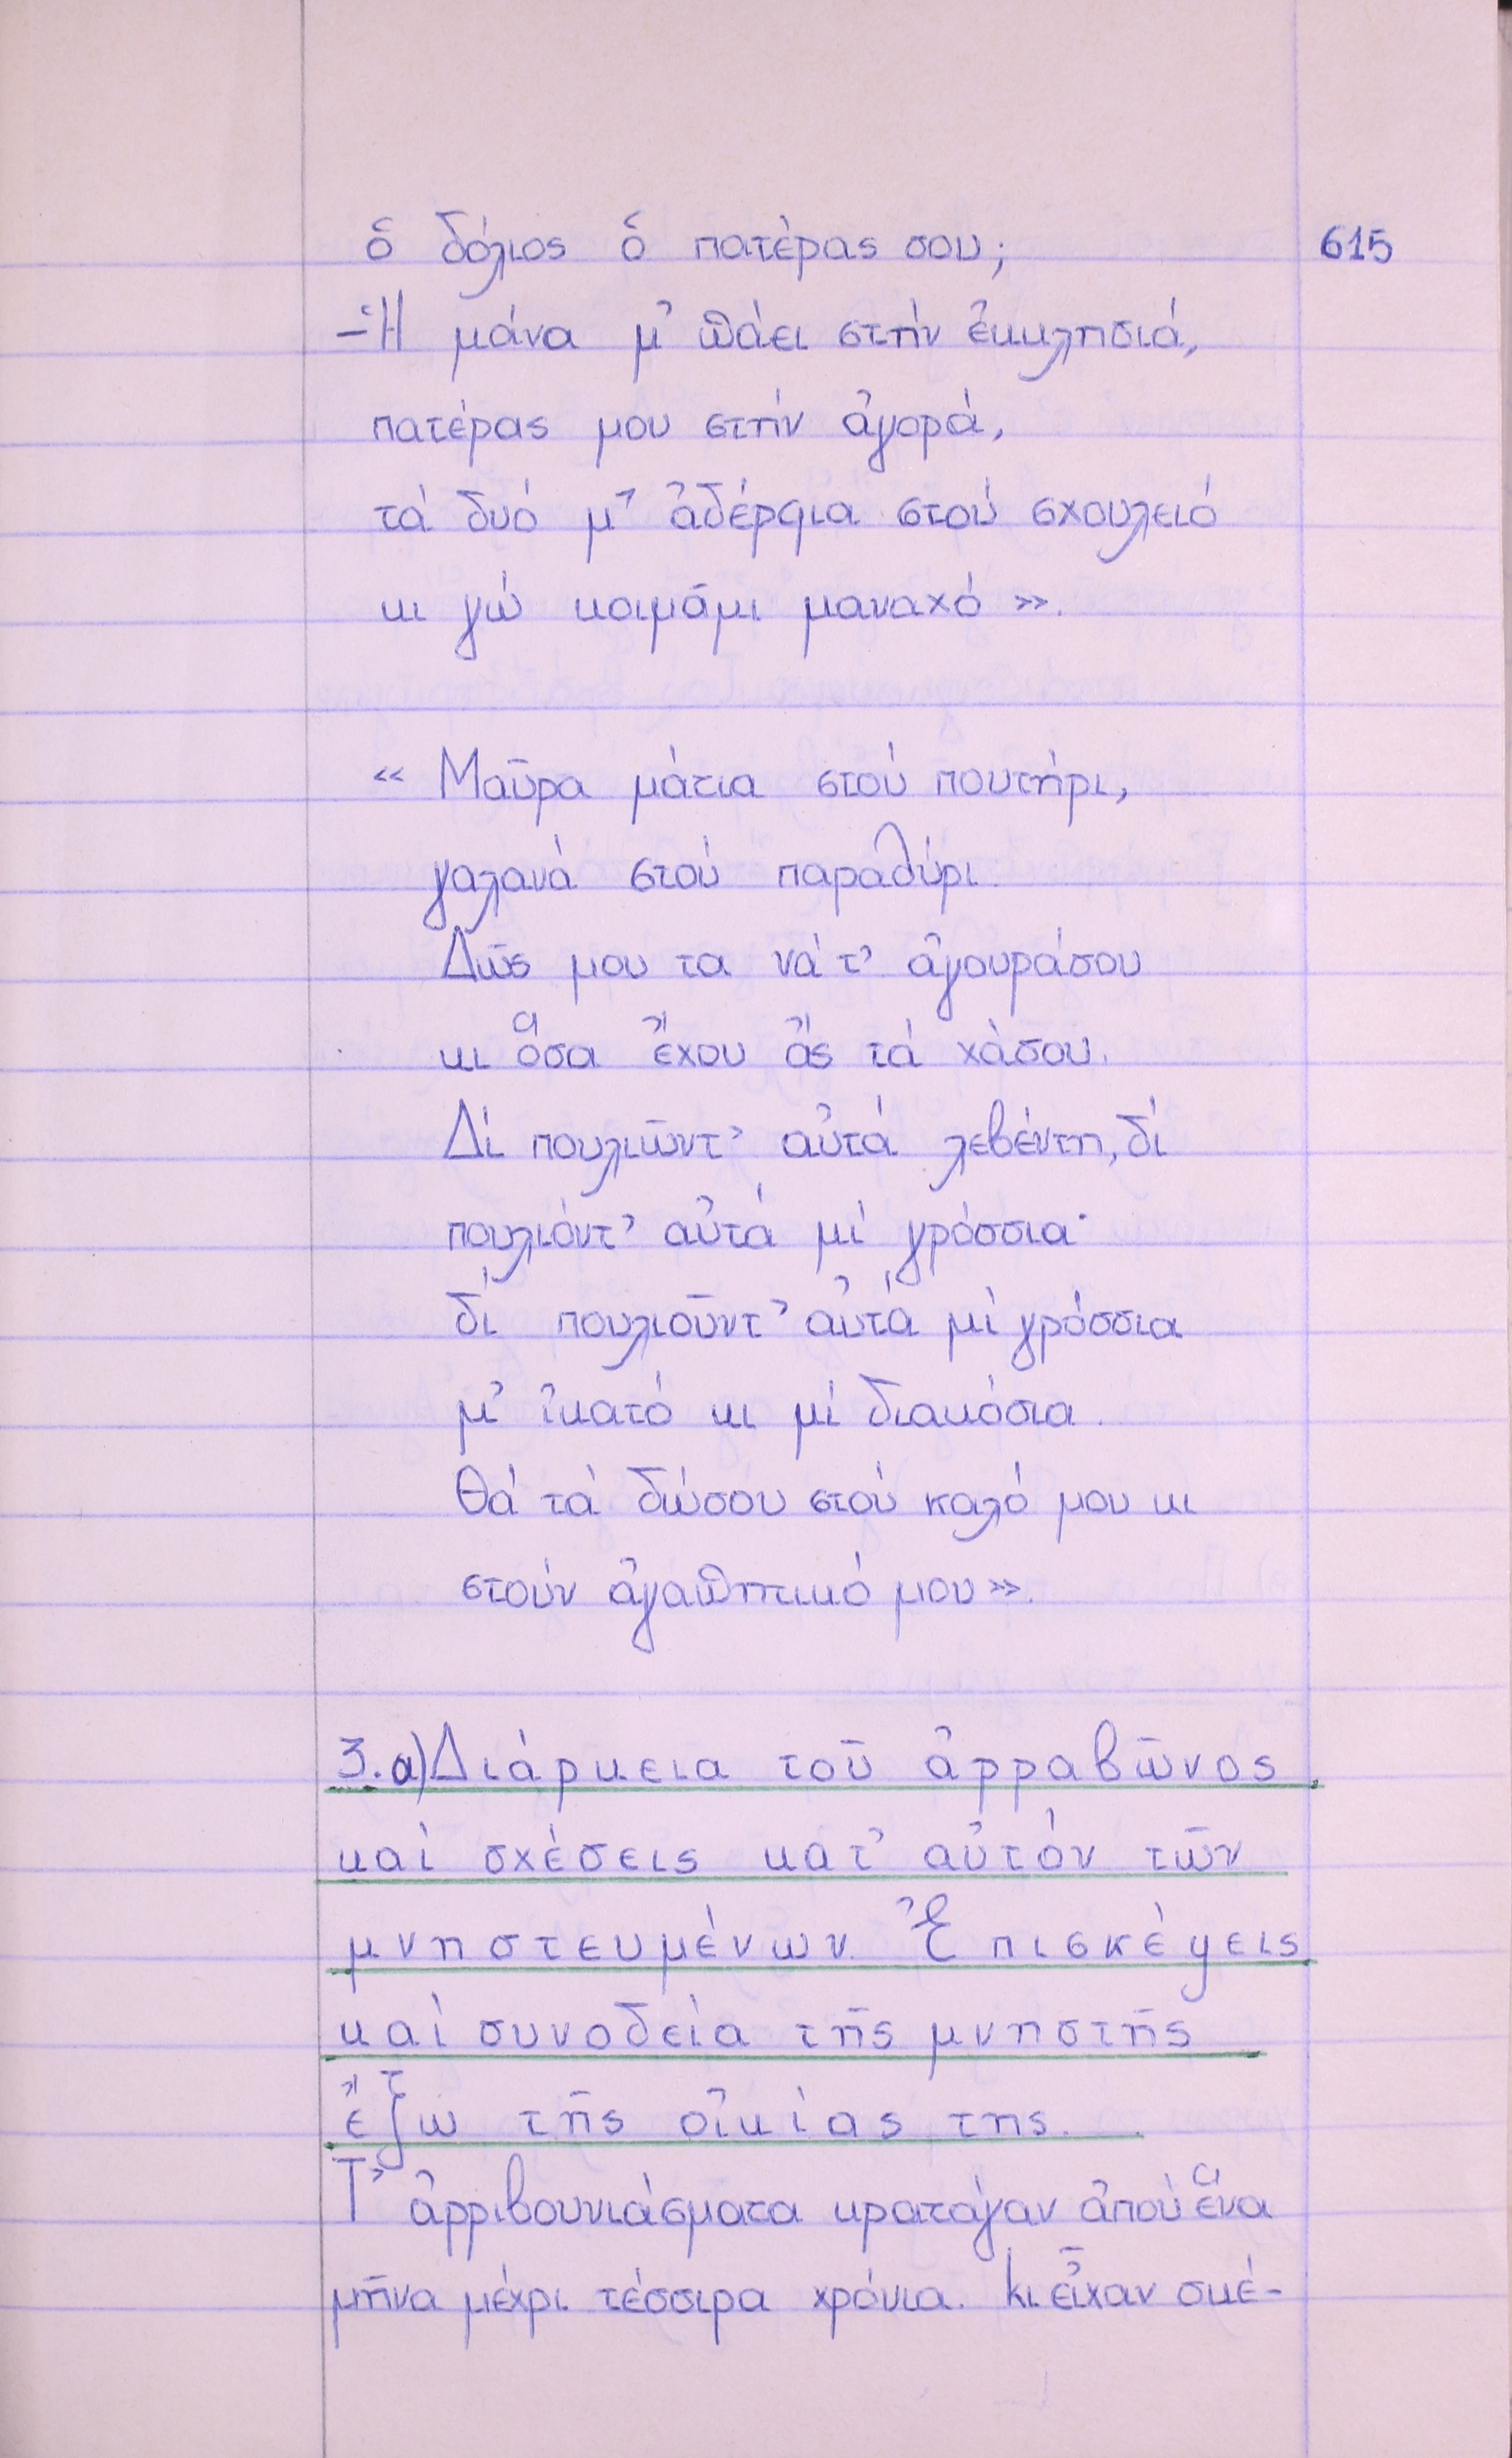 ὁ δόλιος ὁ πατέρας σου; 615
-Ἡ μάνα μ' πάει στήν ἐκκλησιά,
πατέρας μου στήν ἀγορά,
τά δυό μ' ἀδέρφια στού σχουλειό
κι γώ κοιμᾶμι μαναχό».
« Μαῦρα μάτια στού πουτήρι,
γαλανά στού παραθύρι.
Δῶς μου τα νά τ' ἀγουράσου
κι ὅσα ἔχου ἄς τά χάσου.
Δί πουλιῶντ' αὐτά λεβέντη, δί
πουλιόντ' αὐτά μί γρόσσια·
δί πουλιοῦντ' αὐτά μί γρόσσια
μ' ἰκατό κι μί διακόσια.
Θά τά δώσου στού καλό μου κι
στούν ἀγαπητικό μου».
3.α) Διάρκεια τοῦ ἀρραβῶνος
καί σχέσεις κατ' αὐτόν τῶν
μνηστευμένων. Ἐπισκέψεις
καί συνοδεία τῆς μνηστῆς
ἔξω τῆς οἰκίας της.
Τ' ἀρριβουνιάσματα κρατάγαν ἀπού ἕνα
μῆνα μέχρι τέσσιρα χρόνια. Κι εἶχαν σκέ-